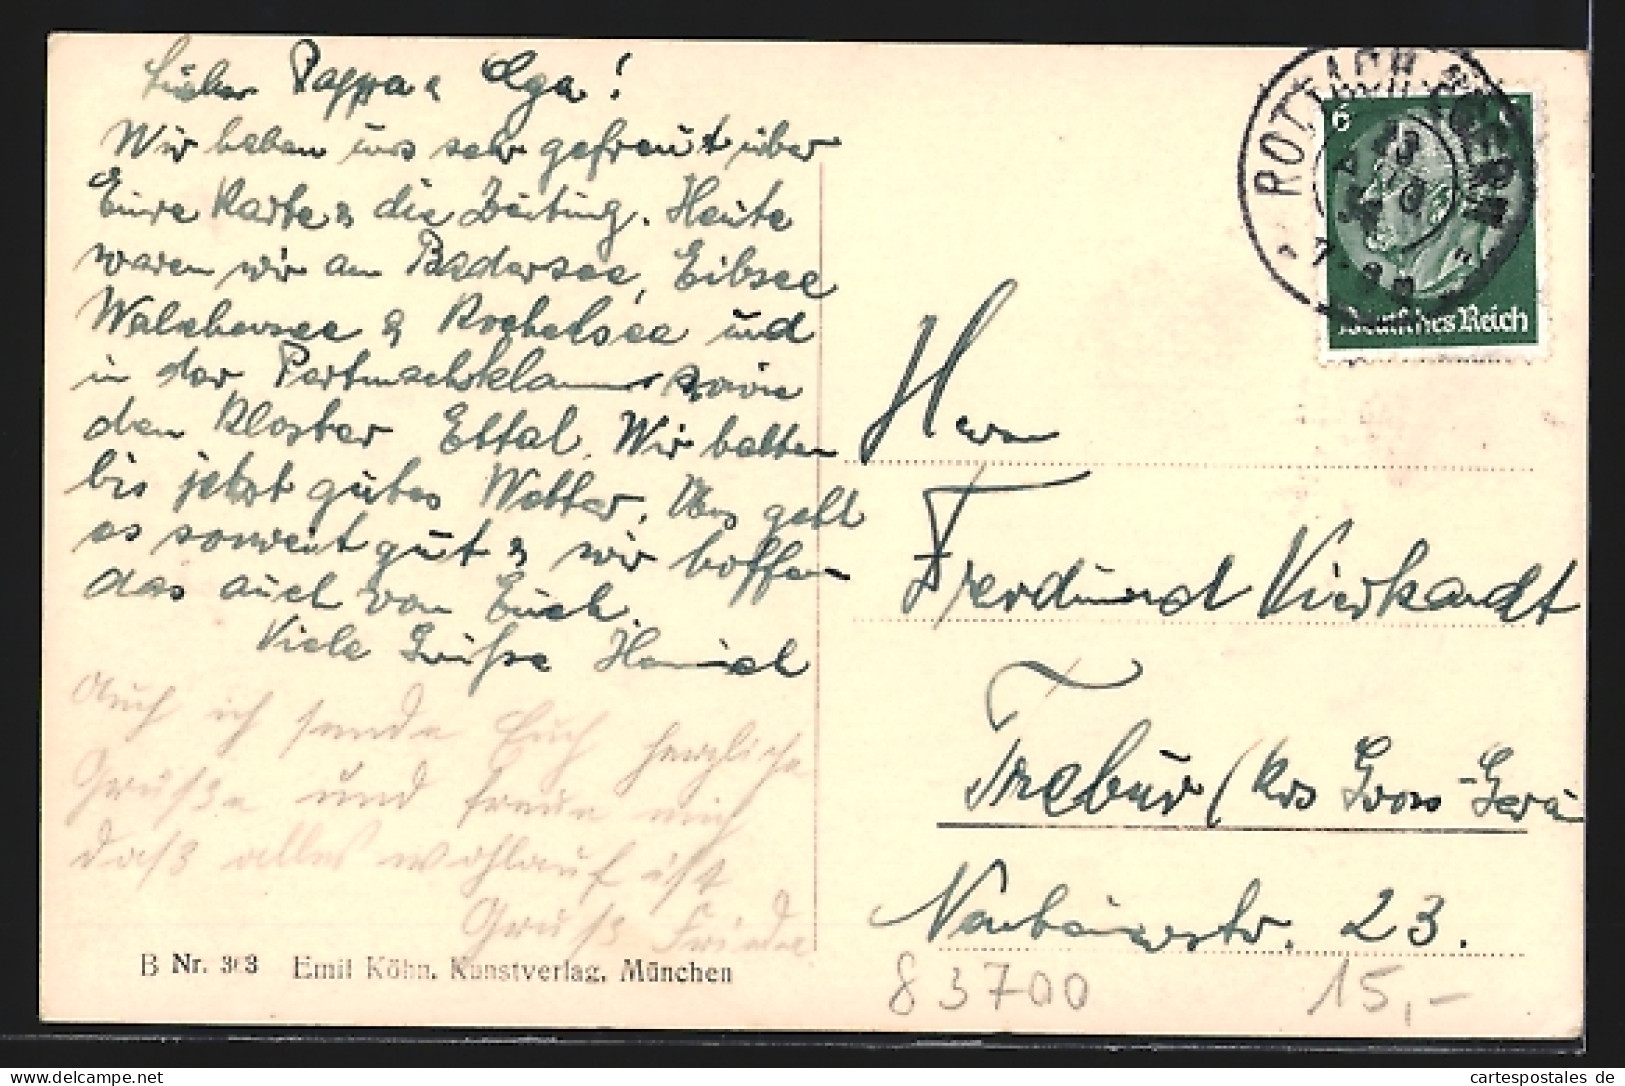 Lieber Pappa & Olga!
Wir haben uns sehr gefreut über
Eure Karte & die Zeitung. Heute
waren wir am Badersee, Eibsee
Walchensee & Kochelsee und
in der Partnachklamm sowie
den Kloster Ettal. Wir hatten
bis jetzt gutes Wetter. Uns geht
es soweit gut & wir hoffen
das auch von Euch.
Viele Grüsse Heinrich
Auch ich sende Euch herzliche
Grüße und freue mich
daß alles wohlauf ist
Gruß Friedel
B Nr. 303 Emil Köhn, Kunstverlag, München
ROTTACH-EGERN
6
Deutsches Reich
Herrn
Ferdinand Vierhandt
Trebur (Krs Gross-Gerau
23.
83700 15,-
delcampe.net
cartespostales de